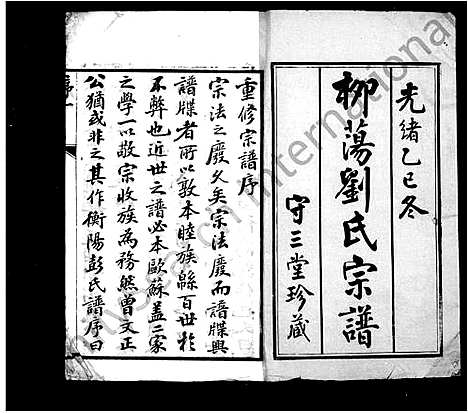 光緒乙巳冬
柳蕩劉氏宗譜
守三堂珍藏
重修宗譜序
宗法之廢久矣宗法廢而譜牒興
譜牒者所以敦本睦族緜百世於
不弊也近世之譜必本歐蘇蓋二家
之學一以敬宗收族為務然曾文正
公猶或非之其作衡陽彭氏譜序曰
序一